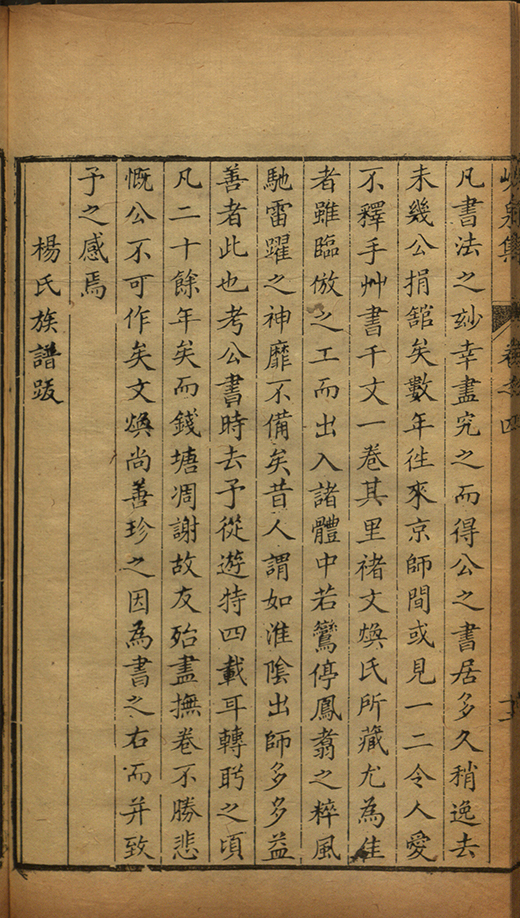 峴泉集 卷之四
凡書法之玅幸盡究之而得公之書居多久稍逸去
未幾公捐舘矣數年徃來京師間或見一二令人愛
不釋手艸書千文一卷其里禇文煥氏所藏尤為佳
者雖臨倣之工而出入諸體中若鸞停鳳翥之粹風
馳雷躍之神靡不備矣昔人謂如淮陰出師多多益
善者此也考公書時去予從遊特四載耳轉盻之頃
凡二十餘年矣而錢塘凋謝故友殆盡撫卷不勝悲
慨公不可作矣文煥尚善珍之因為書之右而并致
予之感焉
楊氏族譜跋